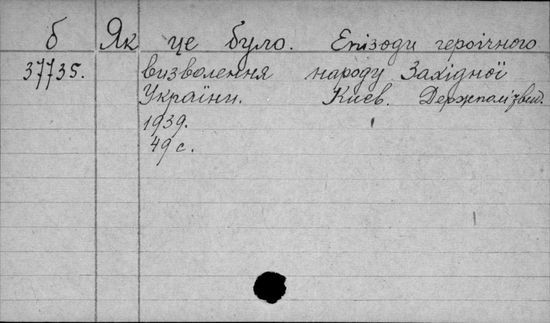 б Як це було. Епізоди героїчного
37735. визволення народу Західної
України. Киев. Держполітвид.
1939.
49 с.